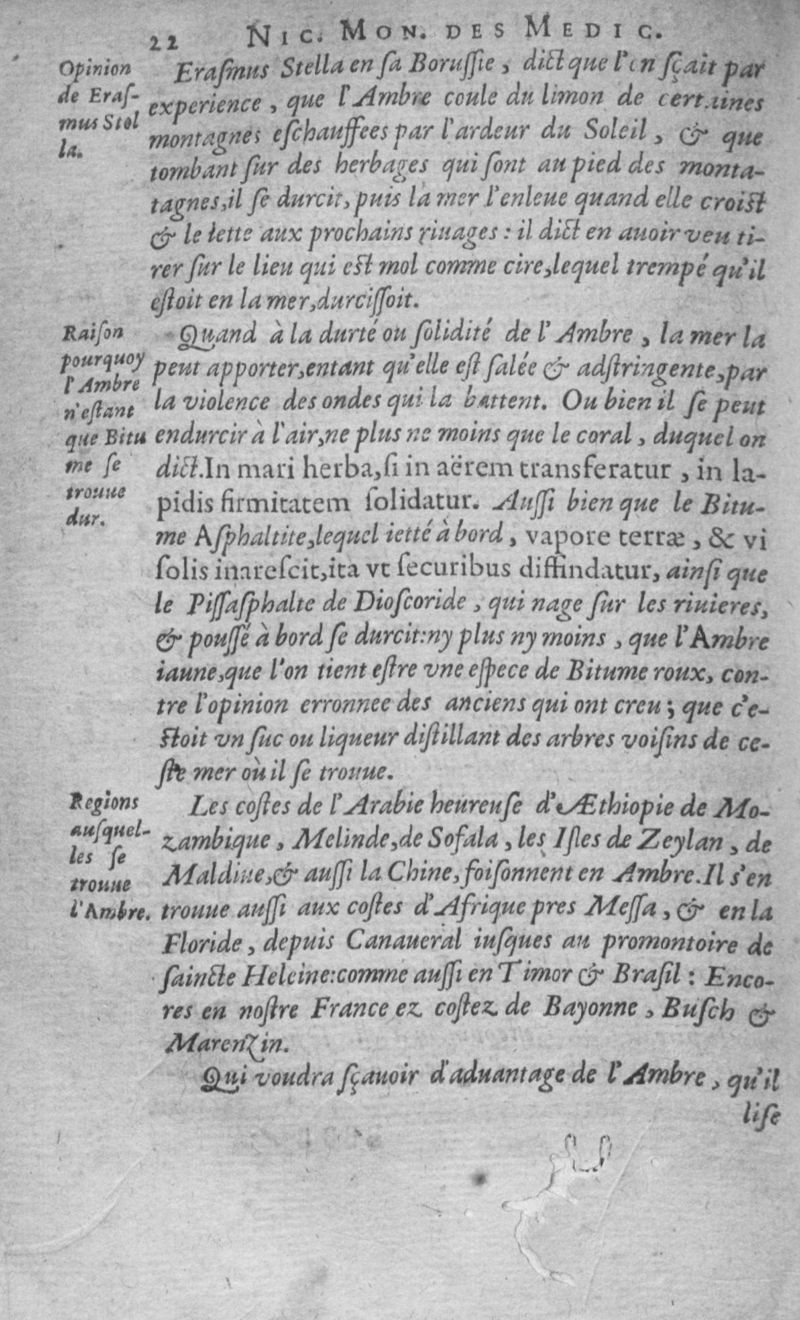 22 NIC. MON. DES MEDIC.
Opinion
de Eraſ-
mus Stol
la.
Eraſmus Stella en ſa Boruſſie, dict que l'on ſçait par
experience, que l'Ambre coule du limon de certaines
montagnes eſchauffees par l'ardeur du Soleil, & que
tombant ſur des herbages qui ſont au pied des monta-
tagnes, il ſe durcit, puis la mer l'enleue quand elle croiſt
& le iette aux prochains riuages : il dict en auoir veu ti-
rer ſur le lieu qui eſt mol comme cire, lequel trempé qu'il
eſtoit en la mer, durciſſoit.
Raiſon
pourquoy
l'Ambre
n'eſtant
que Bitu
me ſe
trouue
dur.
Quand à la durté ou ſolidité de l'Ambre, la mer la
peut apporter, entant qu'elle eſt ſalée & adſtringente, par
la violence des ondes qui la battent. Ou bien il ſe peut
endurcir à l'air, ne plus ne moins que le coral, duquel on
dict. In mari herba, ſi in aërem transferatur, in la-
pidis firmitatem ſolidatur. Auſſi bien que le Bitu-
me Aſphaltite, lequel ietté à bord, vapore terræ, & vi
ſolis inareſcit, ita vt ſecuribus diffindatur, ainſi que
le Piſſaſphalte de Dioſcoride, qui nage ſur les riuieres,
& pouſſé à bord ſe durcit: ny plus ny moins, que l'Ambre
iaune, que l'on tient eſtre vne eſpece de Bitume roux, con-
tre l'opinion erronnee des anciens qui ont creu; que c'e-
ſtoit vn ſuc ou liqueur diſtillant des arbres voiſins de ce-
ſte mer où il ſe trouue.
Regions
auſquel-
les ſe
trouue
l'Ambre.
Les coſtes de l'Arabie heureuſe d'Æthiopie de Mo-
zambique, Melinde, de Sofala, les Iſles de Zeylan, de
Maldiue, & auſſi la Chine, foiſonnent en Ambre. Il s'en
trouue auſſi aux coſtes d'Afrique pres Meſſa, & en la
Floride, depuis Canaueral iuſques au promontoire de
ſaincte Heleine: comme auſſi en Timor & Braſil : Enco-
res en noſtre France ez coſtez de Bayonne, Buſch &
Marenzin.
Qui voudra ſçauoir d'aduantage de l'Ambre, qu'il
liſe